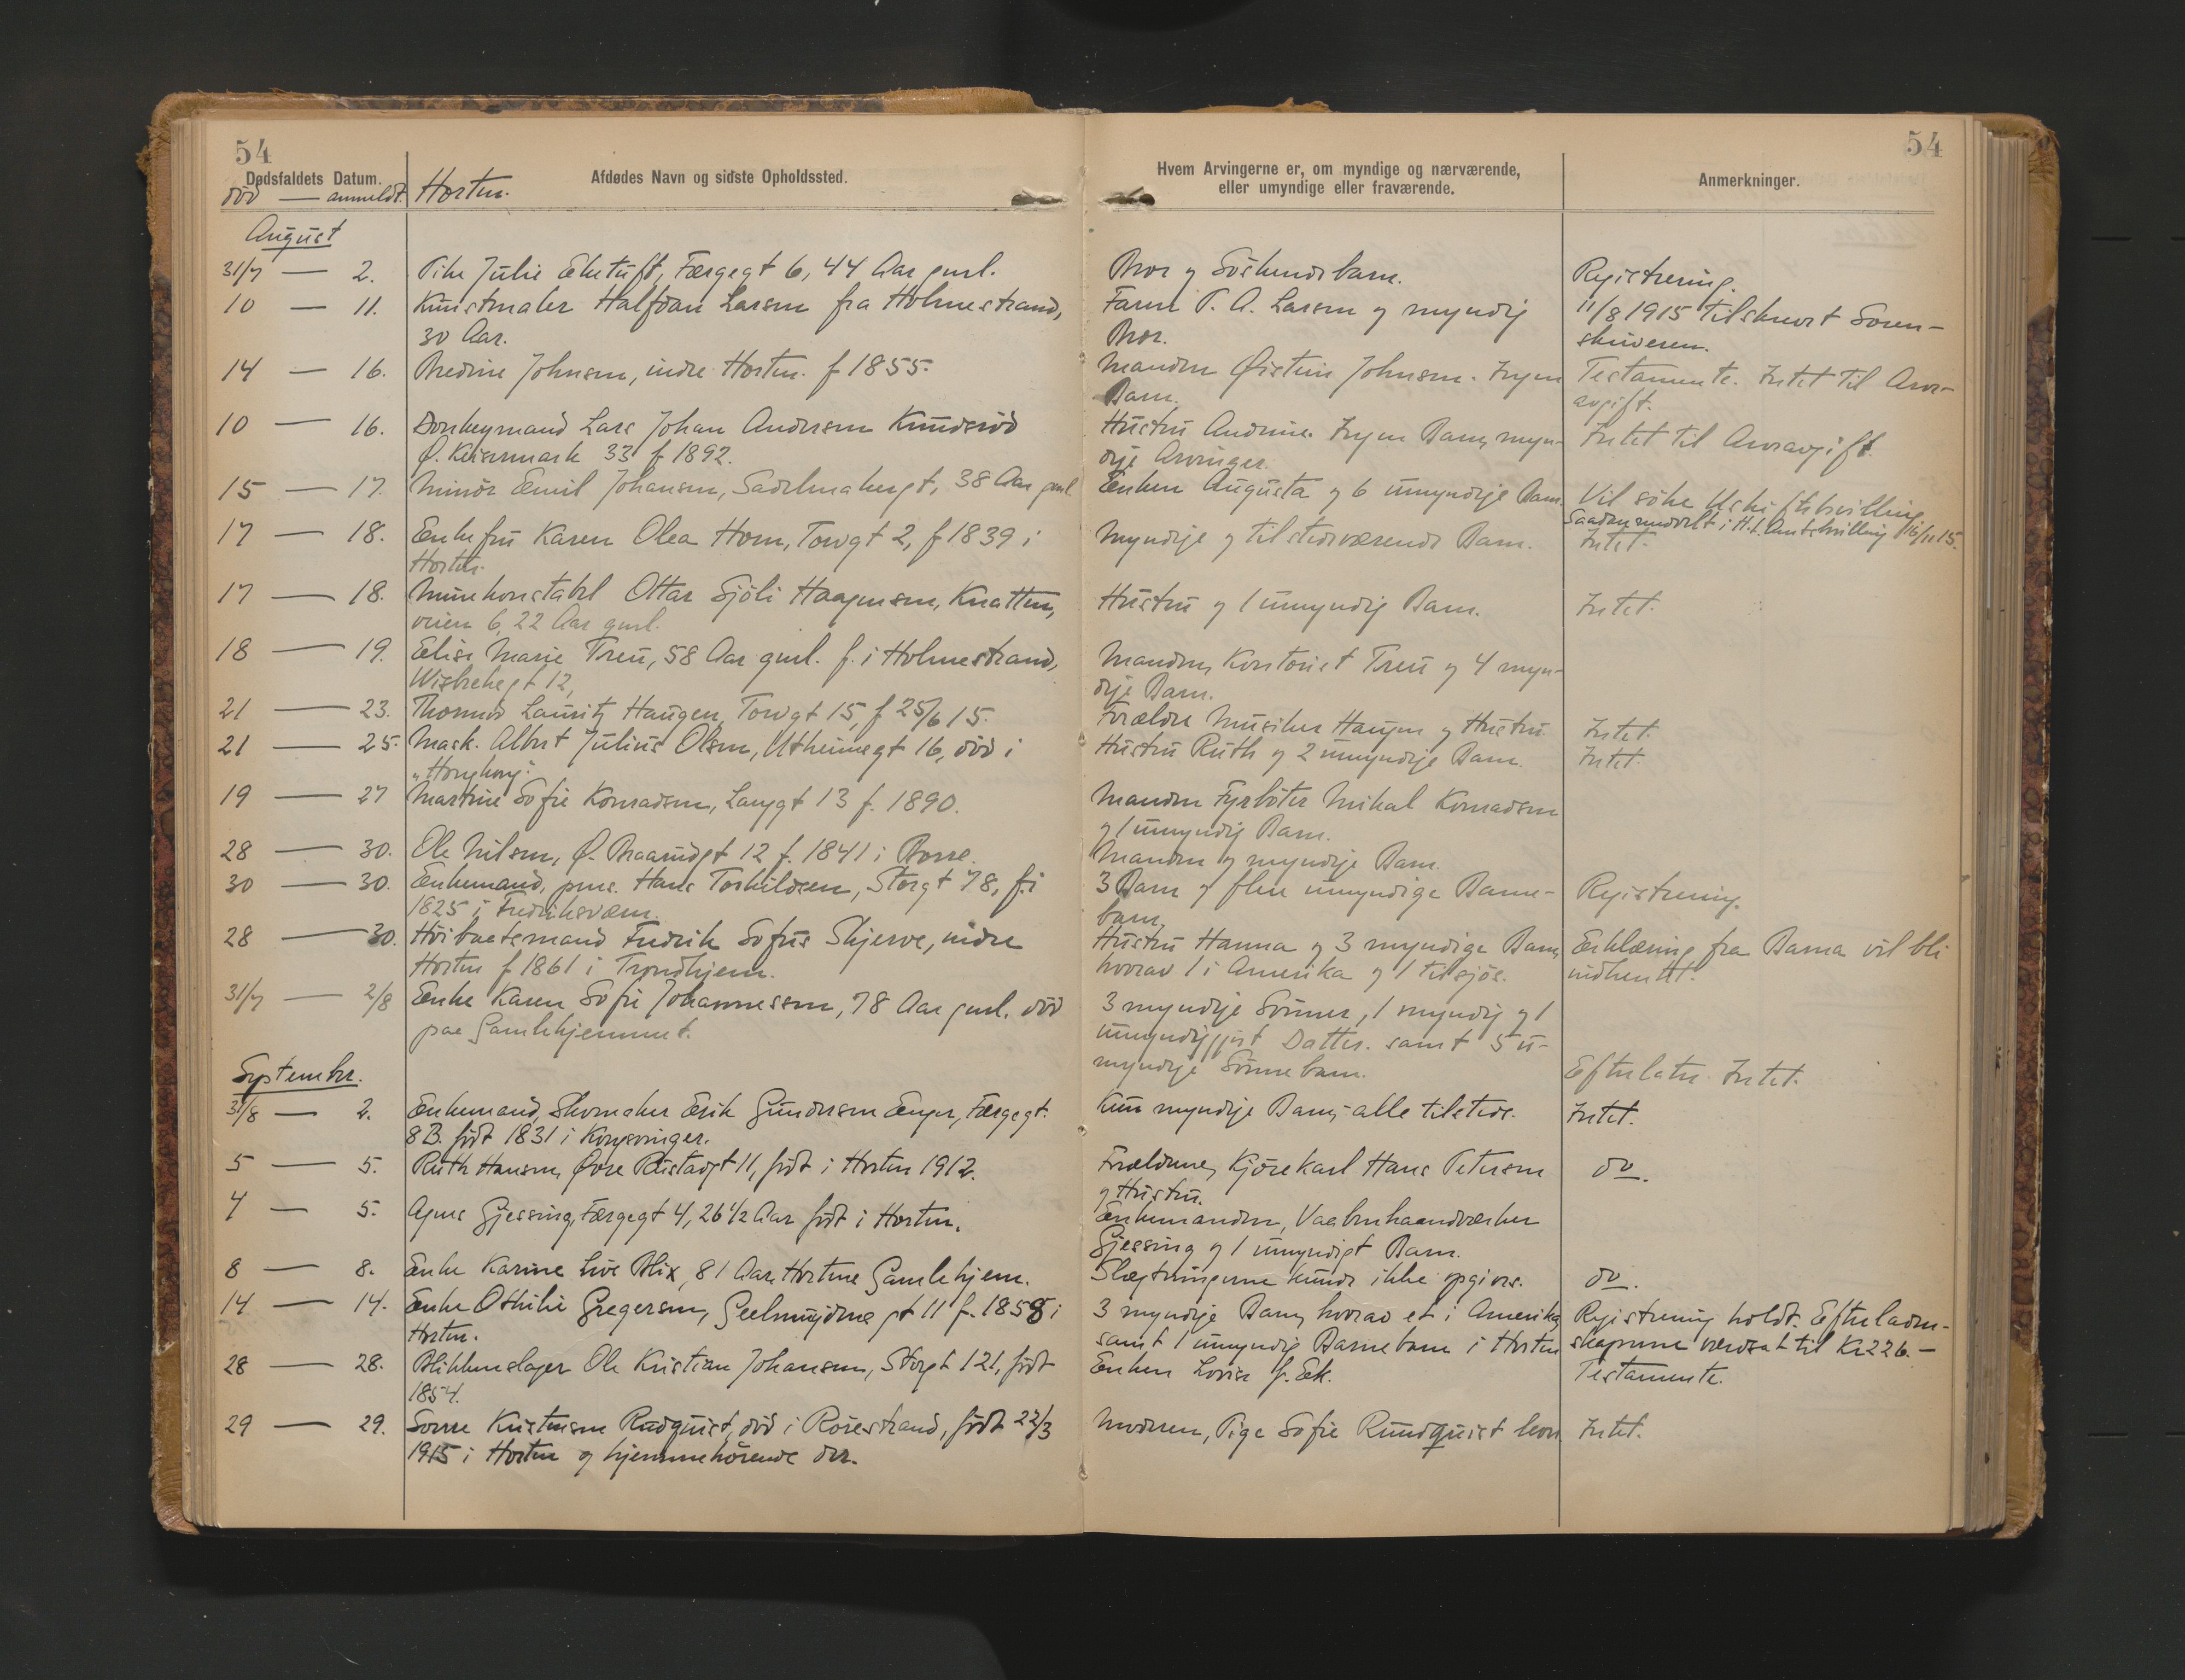 54
54
Dødsfaldets Datum.
død — anmeldt.
Horten.
Afdødes Navn og sidste Opholdssted.
Hvem Arvingerne er, om myndige og nærværende,
eller umyndige eller fraværende.
Anmerkninger.
August
31/7 — 2. Pike Julie Eketuft, Færgegt 6, 44 Aar gml. Bror og Söskendebarn. Registrering.
10 — 11. Kunstmaler Halfdan Larsen fra Holmestrand, Faren P. A. Larsen og myndig 11/8 1915 tilskrevt Soren-
30 Aar. Bror. skriveren.
14 — 16. Bredine Johnsen, indre Horten. f 1855. Manden Øistein Johnsen. Ingen Testamente. Intet til Arve-
Barn. avgift.
10 — 16. Donkeymand Lars Johan Andersen Knudsröd Hustru Andrine. Ingen Barn, myn- Intet til Arveavgift.
Ø. Keisermark 33 f 1892. dige Arvinger.
15 — 17. Minör Emil Johansen, Sadelmakergt, 38 Aar gml Enken Augusta og 6 umyndige Barn. Vil söke Uskiftebevilling
Saadan meddelt i H.t. Amtsbevilling 16/11 15.
17 — 18. Enkefru Karen Olea Horn, Torvgt 2, f 1839 i Myndige og tilstedeværende Barn. Intet.
Horten.
17 — 18. Minekonstabel Ottar Sjöli Haagensen, Knatten, Hustru og 1 umyndig Barn. Intet.
veien 6, 22 Aar gml.
18 — 19. Elise Marie Treu, 58 Aar gml. f. i Holmestrand, Manden, Kontorist Treu og 4 myn-
Wisbechgt 12, dige Barn.
21 — 23. Thorvod Lauritz Haugen, Torvgt 15, f 25/6 15. Forældre Musiker Haugen og Hustru Intet.
21 — 25. Mask. Albert Julius Olsen, Utheimsgt 16, död i Hustru Ruth og 2 umyndige Barn. Intet.
"Hongkong".
19 — 27 Martine Sofie Konradsen, Langgt 13 f. 1890. Manden Fyrböter Mikal Konradsen
og 1 umyndig Barn.
28 — 30. Ole Nilsen, Ø. Braarudgt 12 f. 1841 i Borre. Manden og myndige Barn.
30 — 30. Enkemand, pens. Hans Torkildsen, Storgt 78, f. i 3 Barn og flere umyndige Barne- Registrering.
1825 i Fredriksværn. barn,
28 — 30. Höibaatsmand Fredrik Sofus Skjerve, indre Hustru Hanna og 3 myndige Barn, Erklæring fra Barna vil bli
Horten f 1861 i Trondhjem. hvorav 1 i Amerika og 1 tilsjös. indhentet.
31/7 — 2/8 Enke Karen Sofie Johannessen, 78 Aar gml. död 3 myndige Sönner, 1 myndig og 1
paa Gamlehjemmet. umyndiggjort Datter. samt 5 u-
myndige Sönnebarn. Efterlater Intet.
September.
31/8 — 2. Enkemand, Skomaker Erik Gundersen Enger, Færgegt. Kun myndige Barn, alle tilstede. Intet.
8B. född 1831 i Kongsvinger.
5 — 5. Ruth Hansen, Övre Rustadgt 11, född i Horten 1912. Forældrene, Kjörekarl Hans Petersen do.
og Hustru.
4 — 5. Agnes Gjessing, Færgegt 4, 26 1/2 Aar född i Horten. Enkemanden, Vaabenhaandværker
Gjessing og 1 umyndigt Barn.
8 — 8. Enke Karine Live Blix, 81 Aar. Hortens Gamlehjem. Slægtningerne kunde ikke opgives. do.
14 — 14. Enke Othilie Gregersen, Geelmuydens gt 11 f. 1858 i 3 myndige Barn, hvorav et i Amerika, Registrering holdt. Efterladen-
Horten. samt 1 umyndig Barnebarn i Horten skapene verdsat til Kr 226.—
28 — 28. Blikkenslager Ole Kristian Johansen, Storgt 121, född Enken Lovise f. Ek. Testamente.
1854.
29 — 29. Sverre Kristensen Rudquist, död i Rörestrand, född 22/3 Moderen, Pige Sofie Rundquist Intet.
1915 i Horten og hjemmehörende der.